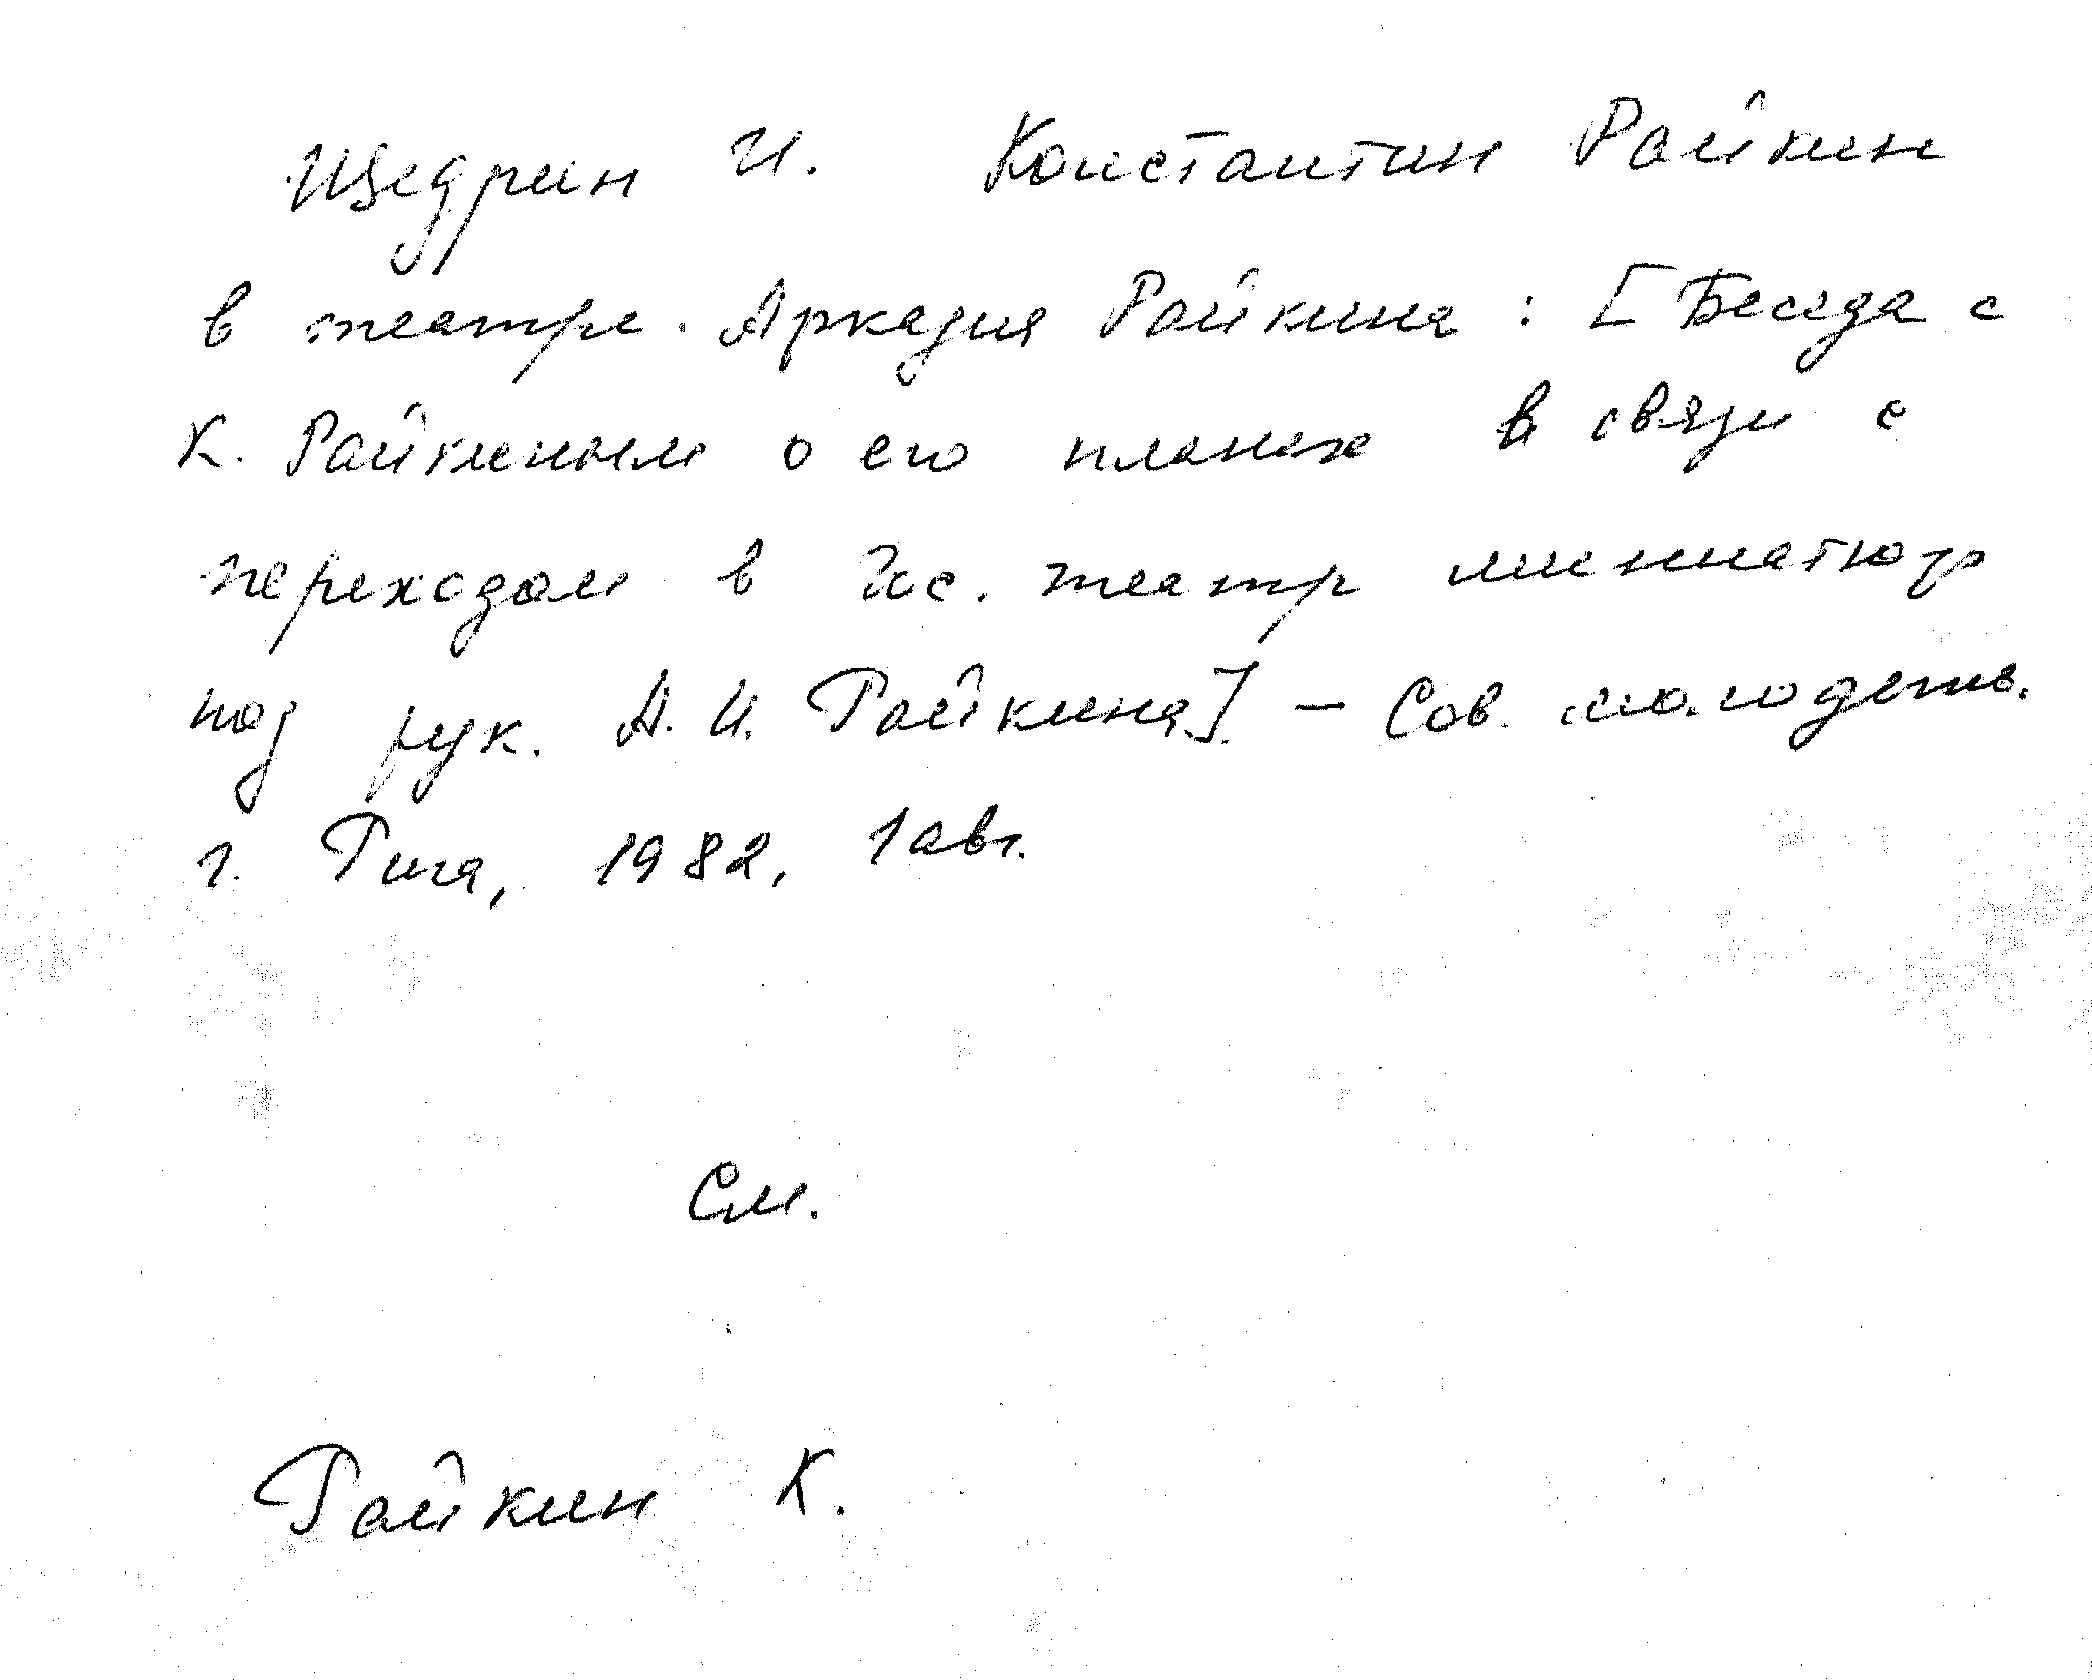 Щедрин И. Константин Райкин
в театре Аркадия Райкина : [Беседа с
К. Райкиным о его планах в связи с
переходом в Гос. театр миниатюр
под рук. А. И. Райкина]. – Сов. молодежь.
г. Рига, 1982, 1 авг.
См.
Райкин К.